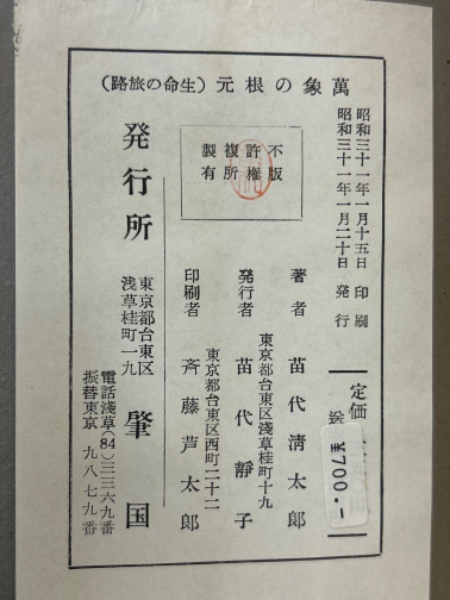 萬象の根元（生命の旅路）
昭和三十一年一月十五日 印刷
昭和三十一年一月二十日 発行
定価
送
¥700.-
不許複製
版権所有
著者 苗代清太郎
東京都台東区浅草桂町十九
発行者 苗代靜子
東京都台東区西町二十二
印刷者 斉藤芦太郎
発行所 肇国
東京都台東区
浅草桂町一九
電話淺草(84)三三六九番
振替東京 九八七九番